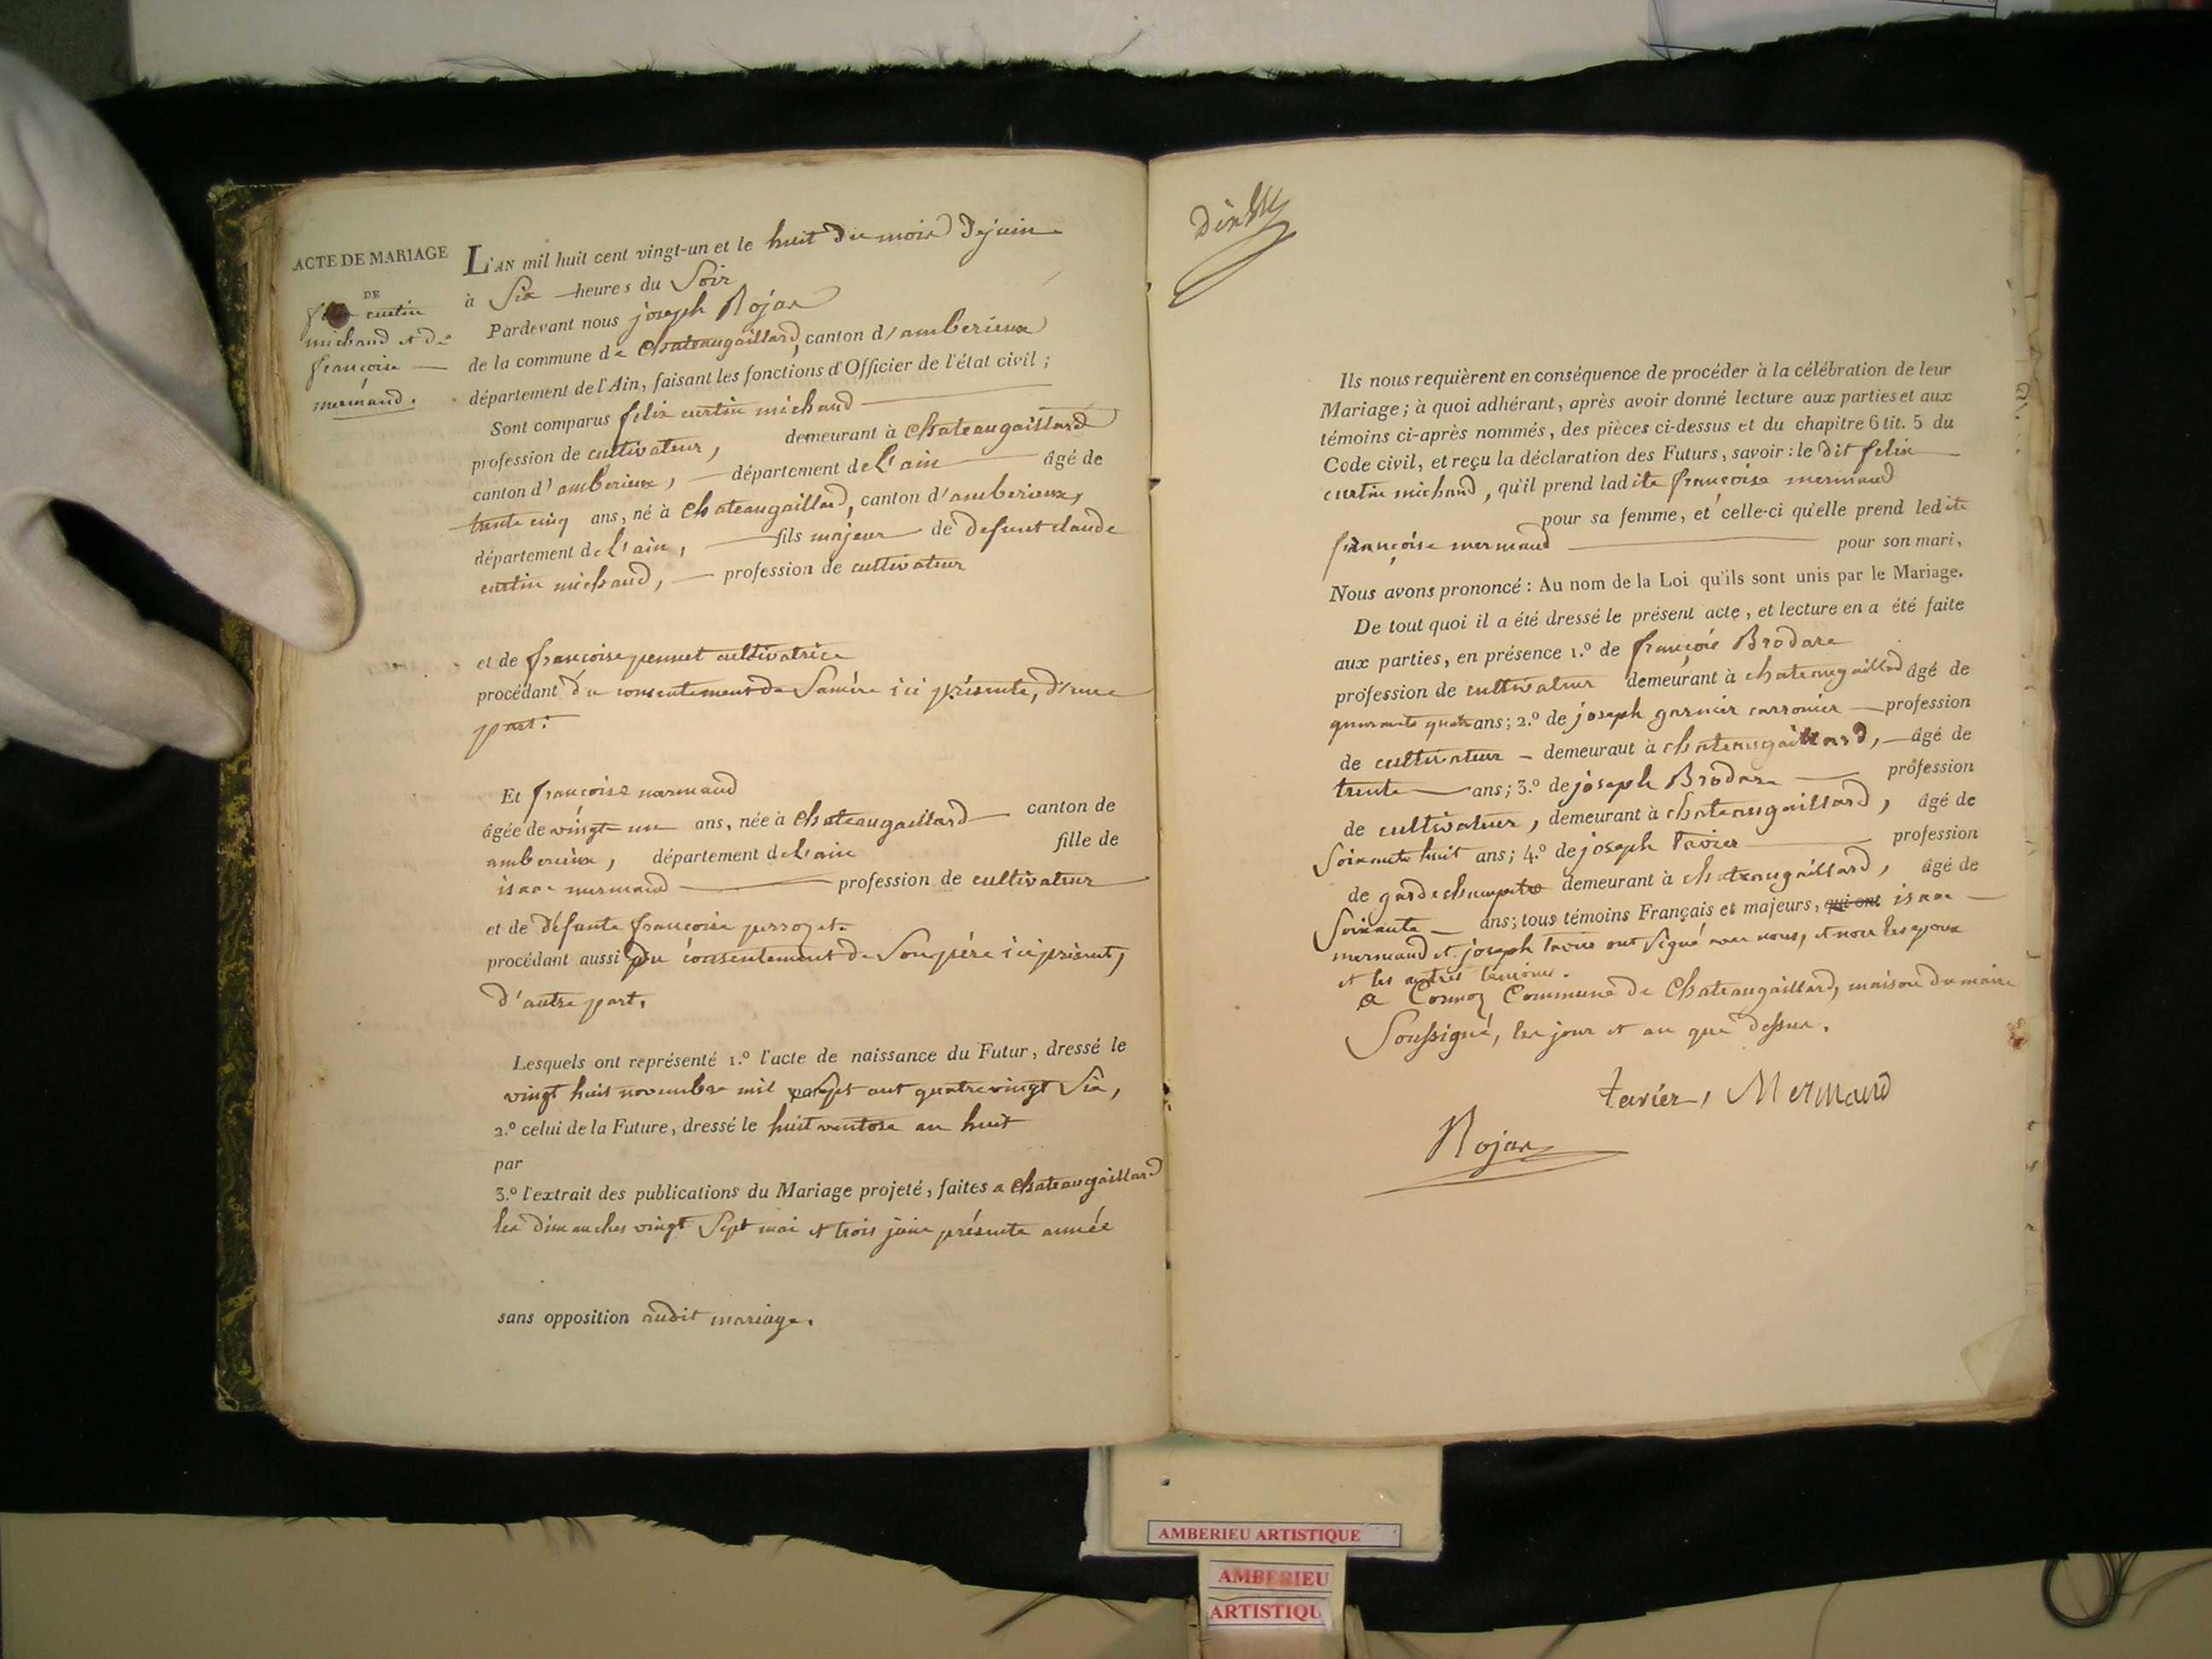 ACTE DE MARIAGE
DE
curtin
michaud et de
françoise
mermand.
L'AN mil huit cent vingt-un et le huit du mois de juin
à Six heures du Soir
Pardevant nous joseph Rojas
de la commune de Chateaugaillard, canton d'amberieux
département de l'Ain, faisant les fonctions d'Officier de l'état civil;
Sont comparus felix curtin michaud
profession de cultivateur, demeurant à chateaugaillard
canton d'amberieux, département de l'ain âgé de
trente cinq ans, né à Chateaugaillard, canton d'amberieux,
département de l'ain, fils majeur de defunt claude
curtin michaud, profession de cultivateur
et de françoise cultivatrice
procédant du consentement de Sa mère ici présente, d'une
part.
Et françoise marmand
âgée de vingt-un ans, née à Chateaugaillard canton de
amberieux, département de l'ain fille de
isaac mermand profession de cultivateur
et de défunte françoise
procédant aussi du consentement de Son père ici présent,
d'autre part.
Lesquels ont représenté 1.º l'acte de naissance du Futur, dressé le
vingt huit novembre mil sept cent quatre vingt Six,
2.º celui de la Future, dressé le huit ventose an huit
par
3.º l'extrait des publications du Mariage projeté, faites a Chateaugaillard
les dimanches vingt Sept mai et trois juin présente année
sans opposition audit mariage.
Ils nous requièrent en conséquence de procéder à la célébration de leur
Mariage; à quoi adhérant, après avoir donné lecture aux parties et aux
témoins ci-après nommés, des pièces ci-dessus et du chapitre 6 tit. 5 du
Code civil, et reçu la déclaration des Futurs, savoir: le dit felix
curtin michaud, qu'il prend ladite françoise mermand
pour sa femme, et celle-ci qu'elle prend ledite
françoise mermand pour son mari,
Nous avons prononcé: Au nom de la Loi qu'ils sont unis par le Mariage.
De tout quoi il a été dressé le présent acte, et lecture en a été faite
aux parties, en présence 1.º de françois Brodare
profession de cultivateur demeurant à chateaugaillard âgé de
quarante quatre ans; 2.º de joseph garnier carronier profession
de cultivateur demeuraut à chateaugaillard, âgé de
trente ans; 3.º de joseph Brodare profession
de cultivateur, demeurant à chateaugaillard, âgé de
Soixante huit ans; 4.º de joseph tavier profession
de gardechampetre demeurant à chateaugaillard, âgé de
Soixante ans; tous témoins Français et majeurs, qui ont isaac
mermand et joseph tavier ont Signé avec nous, et non les epoux
et les autres temoins.
a Cormoz Commune de Chateaugaillard, maison du maire
Soussigné, les jour et an que dessus.
tavier, Mermand
Rojas
AMBERIEU ARTISTIQUE
AMBERIEU
ARTISTIQU